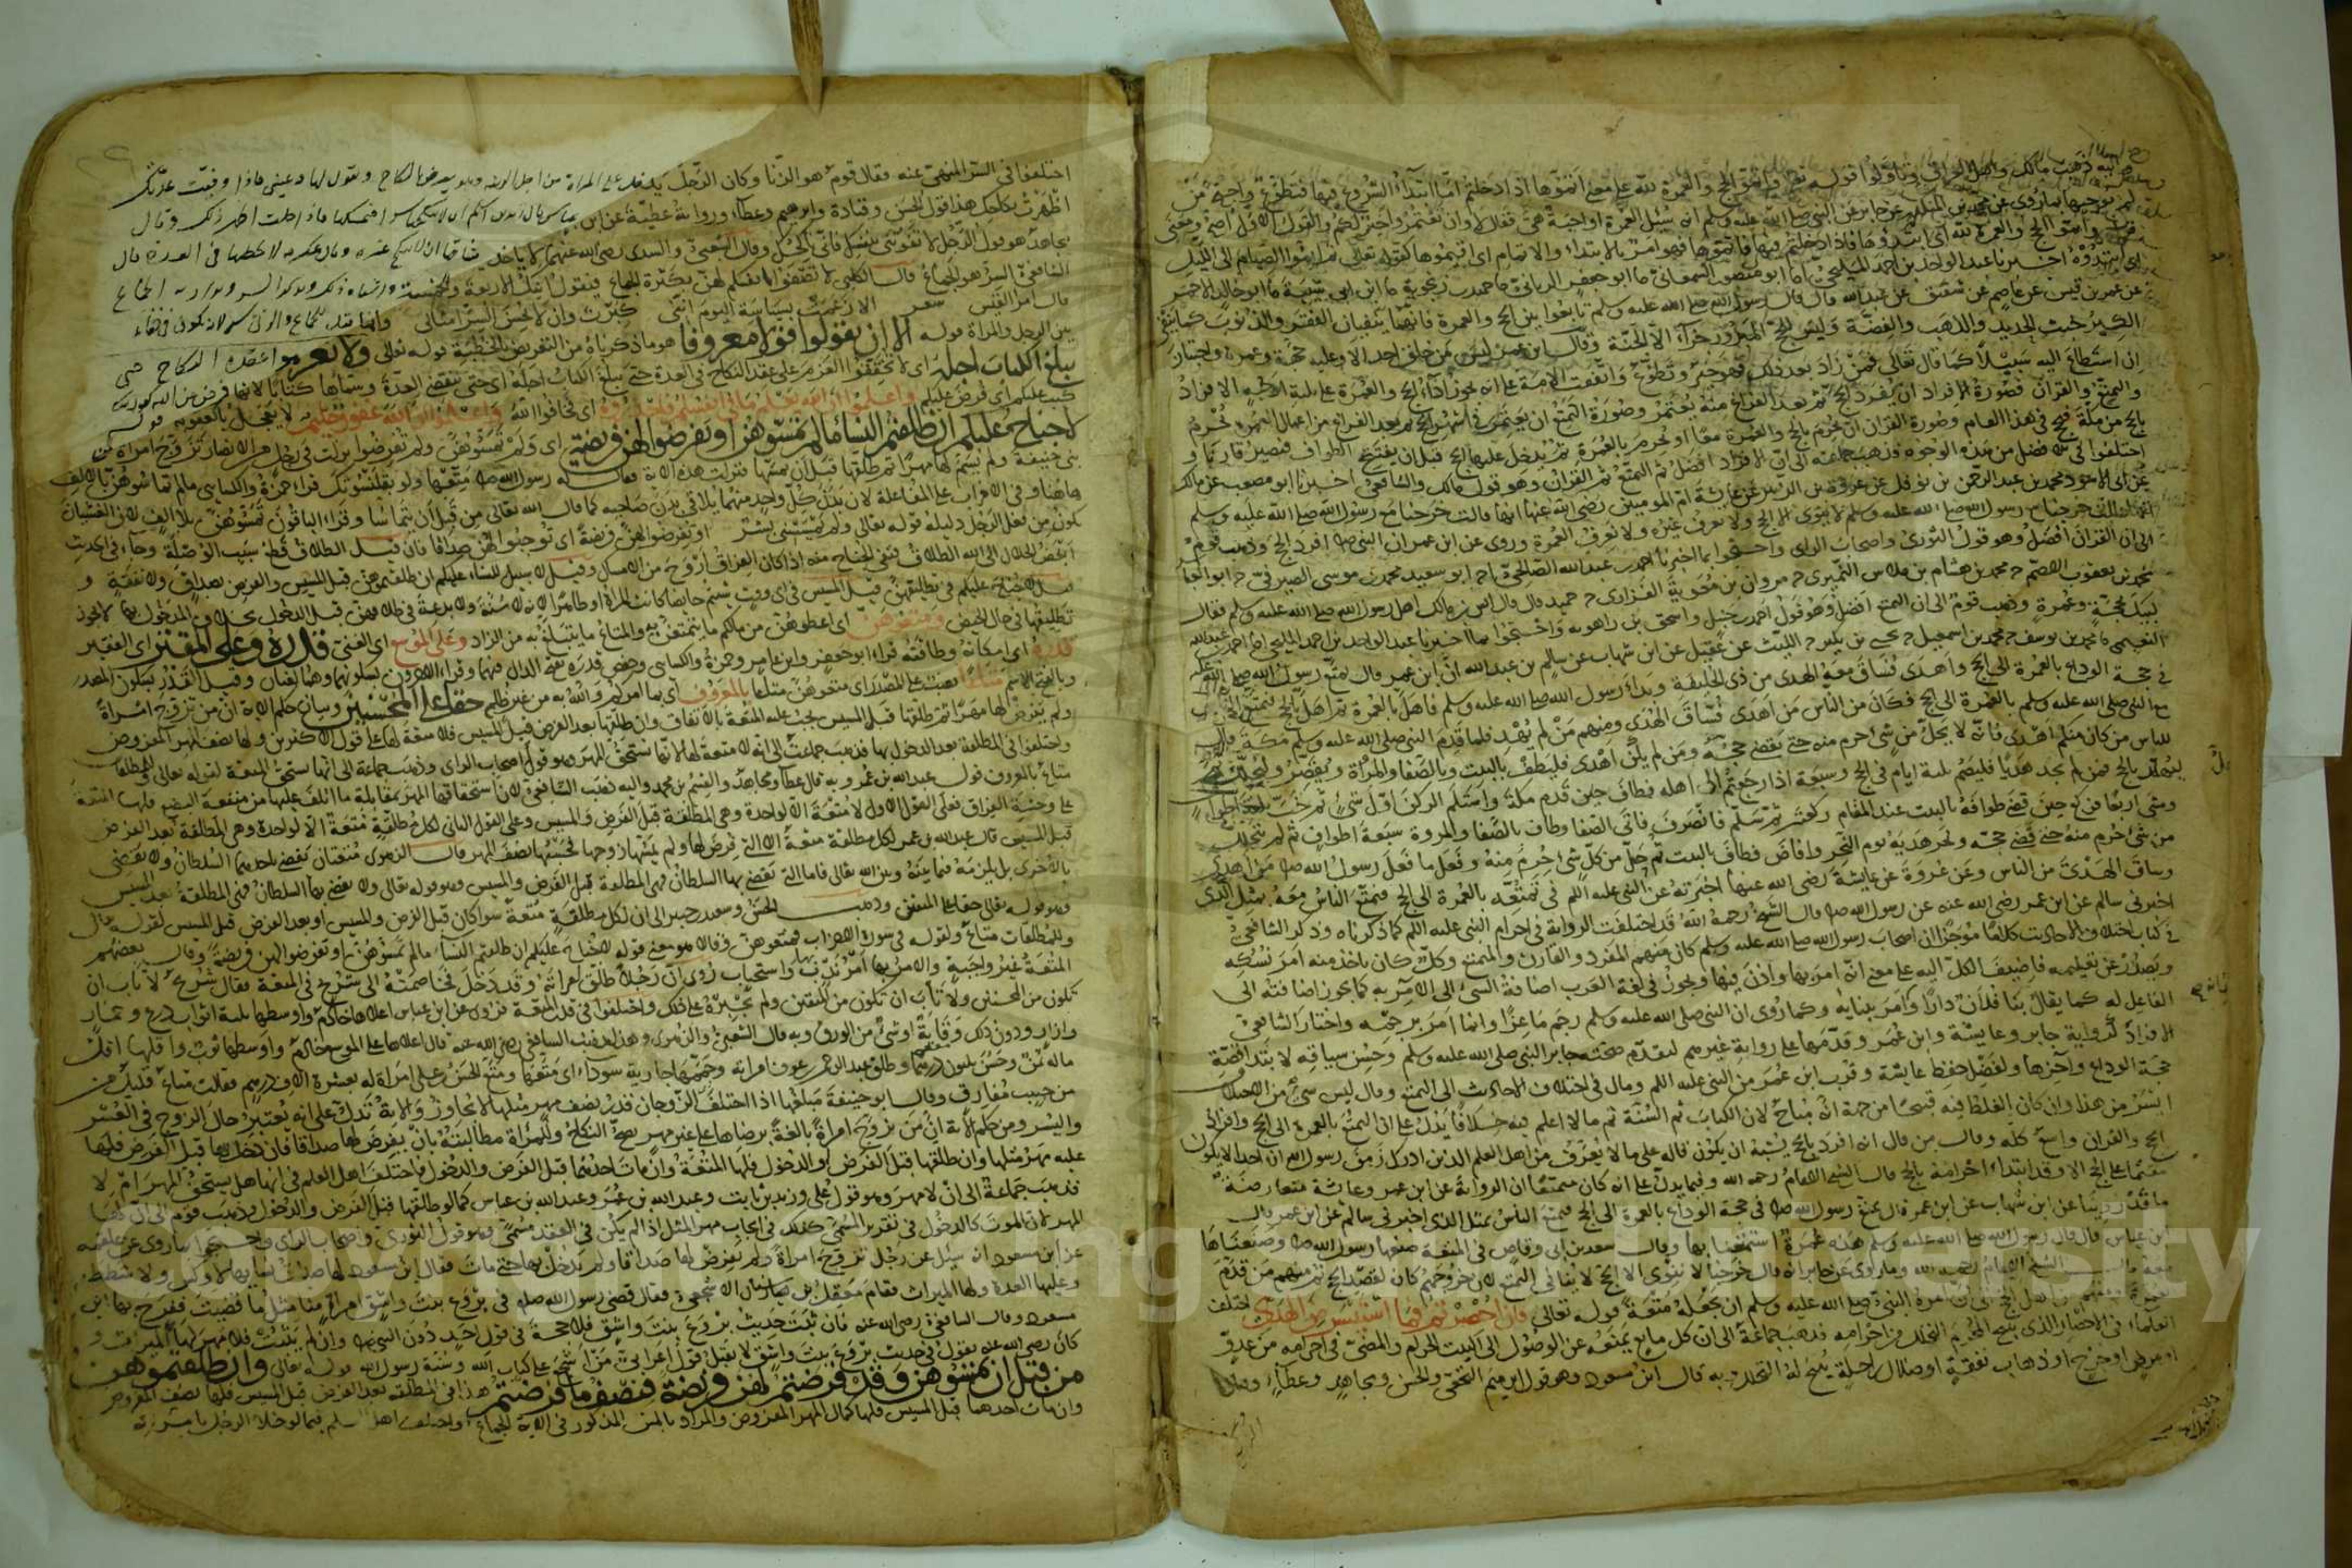 ذهب مالك واهل العراق وتأولوا قوله تعالى واتموا الحج والعمرة لله على معنى اتموها اذا دخلتم اما ابتداء الشروع فيها فتطوع واحتج من
لم يوجبها بما روى عن محمد بن المنكدر عن جابر عن النبي صلى الله عليه وسلم انه سئل عن العمرة اواجبة هي فقال لا وان تعتمروا خير لكم والقول الاول اصح ومعنى
قوله واتموا الحج والعمرة لله اى ابتدؤهما فاذا دخلتم فيها فاتموها فهو امر بالابتداء والاتمام اى اقيموها كقوله تعالى ثم اتموا الصيام الى الليل
اى ابتدؤه اخبرنا عبد الواحد بن احمد المليحي انا ابو منصور السمعاني نا ابو جعفر الرياني نا حميد بن زنجويه نا ابن ابى شيبة نا ابو خالد الاحمر
عن عمر بن قيس عن عاصم عن شقيق عن عبد الله قال قال رسول الله صلى الله عليه وسلم تابعوا بين الحج والعمرة فانهما ينفيان الفقر والذنوب كما ينفى
الكير خبث الحديد والذهب والفضة وليس للحج المبرور جزآء الا الجنة وقال ابن عمر ليس من خلق الله احد الا وعليه حجة وعمرة واجبتان
ان استطاع اليه سبيلا كما قال تعالى فمن زاد بعد ذلك فهو خير وتطوع واتفقت الامة على انه يجوز اداء الحج والعمرة على ثلاثة اوجه الافراد
والتمتع والقران فصورة الافراد ان يفرد الحج ثم بعد الفراغ منه يعتمر وصورة التمتع ان يعتمر فى اشهر الحج ثم بعد الفراغ من اعمال العمرة يحرم
بالحج من مكة فيحج فى هذا العام وصورة القران ان يحرم بالحج والعمرة معا او يحرم بالعمرة ثم يدخل عليها الحج قبل ان يفتتح الطواف فيصير قارنا و
اختلفوا فى الافضل من هذه الوجوه فذهب جماعة الى ان الافراد افضل ثم التمتع ثم القران وهو قول مالك والشافعي اخبرنا ابو مصعب عن مالك
عن ابى الاسود محمد بن عبد الرحمن بن نوفل عن عروة بن الزبير عن عايشة ام المومنين رضى الله عنها انها قالت خرجنا مع رسول الله صلى الله عليه وسلم
الى ان القران افضل وهو قول الثورى واصحاب الراى واحتجوا بما اخبرنا احمد بن عبد الله الصالحى انا ابو سعيد محمد بن موسى الصيرفى
محمد بن يعقوب الاصم محمد بن هشام بن ملاس النميرى مروان بن معوية الفزارى حميد قال قال انس بن مالك اهل رسول الله صلى الله عليه وسلم فقال
لبيك بحجة وعمرة وذهب قوم الى ان التمتع افضل وهو قول احمد بن حنبل واسحق بن راهويه واحتجوا بما اخبرنا عبد الواحد بن احمد المليحي
النعيمى محمد بن يوسف محمد بن اسمعيل يحيى بن بكير الليث عن عقيل عن ابن شهاب عن سالم بن عبد الله ان ابن عمر قال تمتع رسول الله صلى الله عليه
فى حجة الوداع بالعمرة الى الحج واهدى فساق معه الهدى من ذى الحليفة وبدأ رسول الله صلى الله عليه وسلم فاهل بالعمرة ثم اهل بالحج فتمتع الناس
مع النبى صلى الله عليه وسلم بالعمرة الى الحج فكان من الناس من اهدى فساق الهدى ومنهم من لم يهد فلما قدم النبى صلى الله عليه وسلم مكة قال
للناس من كان منكم اهدى فانه لا يحل من شئ احرم منه حتى يقضى حجه ومن لم يكن اهدى فليطف بالبيت وبالصفا والمروة ويقصر وليحلل
ليهلل بالحج فمن لم يجد هديا فليصم ثلثة ايام فى الحج وسبعة اذا رجع الى اهله فطاف حين قدم مكة واستلم الركن اول شئ ثم خب
ومشى اربعا فركع حين قضى طوافه بالبيت عند المقام ركعتين ثم سلم فانصرف فاتى الصفا وطاف بالصفا والمروة سبعة اطواف ثم لم يتحلل
من شئ احرم منه حتى قضى حجه ونحر هديه يوم النحر وافاض فطاف بالبيت ثم حل من كل شئ احرم منه وفعل ما فعل رسول الله من اهدى
وساق الهدى من الناس وعن عروة عن عايشة رضى الله عنها اخبرته عن النبى عليه السلام فى تمتعه بالعمرة الى الحج فتمتع الناس معه بمثل الذى
اخبرنى سالم عن ابن عمر رضى الله عنه عن رسول الله قال الشيخ رحمه الله قد اختلفت الرواية فى احرام النبى عليه السلام كما ذكرناه وذكر الشافعى
فى كتاب اختلاف الاحاديث كلاما موجزه ان اصحاب رسول الله صلى الله عليه وسلم كان منهم المفرد والقارن والمتمتع وكل كان ياخذ منه امر نسكه
ويصدر عن تعليمه فاضيف الكل اليه على معنى انه امر بها واذن فيها ويجوز فى لغة العرب اضافة الشئ الى الآمر به كما يجوز اضافته الى
الفاعل له كما يقال بنا فلان دارا وامر ببنايه وكما روى ان النبى صلى الله عليه وسلم رجم ماعزا وانما امر برجمه واختار الشافعى
الافراد لرواية جابر وعايشة وابن عمر وقدمها على رواية غيرهم لتقدم صحبة جابر النبى صلى الله عليه وسلم وحسن سياقه لابتداء قصة
حجة الوداع وآخرها ولفضل حفظ عايشة وقرب ابن عمر من النبى عليه السلام ومال فى اختلاف الاحاديث الى التمتع وقال ليس شئ من الاختلاف
ايسر من هذا وان كان الغلط فيه قبيحا من جهة انه مباح لان الكتاب ثم السنة ثم ما لا اعلم فيه خلافا يدل على ان التمتع بالعمرة الى الحج وافراد
الحج والقران واسع كله وقال من قال انه افرد الحج يشبه ان يكون قاله على ما لا يعرف من اهل العلم الذين ادرك زمن رسول الله ان احدا لا يكون
مقيما على الحج الا وقد ابتداء احرامه بالحج قال الشيخ الامام رحمه الله ومما يدل على انه كان متمتعا ان الرواية عن ابن عمر وعايشة متعارضة
ما قد روينا عن ابن شهاب عن ابن عمر قال تمتع رسول الله فى حجة الوداع بالعمرة الى الحج فتمتع الناس بمثل الذى اخبرنى سالم عن ابن عمر وقال
ابن عباس قال قال رسول الله صلى الله عليه وسلم هذه عمرة استمتعنا بها وقال سعد بن ابى وقاص فى المتعة صنعها رسول الله وصنعناها
معه قال الشيخ الامام رحمه الله وما روى عن جابر انه قال خرجنا لا ننوى الا الحج لا ينافى التمتع لان خروجهم كان لقصد الحج ثم منهم من قدم
العمرة ومنهم من اهل بالحج الى ان امره النبى صلى الله عليه وسلم ان يجعله متعة قوله تعالى فان احصرتم فما استيسر من الهدى اختلف
العلماء فى الاحصار الذى يبيح للمحرم التحلل من احرامه فذهب جماعة الى ان كل مانع يمنعه عن الوصول الى البيت الحرام والمضى فى احرامه من عدو
او مرض او جرح او ذهاب نفقة او ضلال راحلة يبيح له التحلل وبه قال ابن مسعود وهو قول ابرهيم النخعى والحسن ومجاهد وعطاء
اختلفوا فى السر المنهى عنه فقال قوم هو الزنا وكان الرجل يدخل على المراة من اجل الزنية وهو يعرض بالنكاح ويقول لها دعينى فاذا وفيت عدتك
اظهرت نكاحك هذا قول الحسن وقتادة وابرهيم وعطاء ورواية عطية عن ابن عباس
مجاهد هو قول الرجل لا تفوتينى بنفسك فانى ناكحك وقال الشعبى والسدى رضى الله عنهم لا ياخذ ميثاقها ان لا تنكح غيره وقال عكرمة لا يخطبها فى العدة قال
الشافعى السر هو الجماع وقال الكلبى لا تصفوا انفسكم لهن بكثرة الجماع فيقول آتيك الاربعة والخمسة واشباه ذلك ويذكر السر ويراد به الجماع
قال امرؤ القيس شعر الا زعمت بسباسة اليوم اننى كبرت وان لا يحسن السر امثالى وانما قيل للجماع والزنى سر لانه يكون فى خفاء
بين الرجل والمراة قوله الا ان تقولوا قولا معروفا هو ما ذكرناه من التعريض بالخطبة قوله تعالى ولا تعزموا عقدة النكاح حتى
يبلغ الكتاب اجله اى لا تحققوا العزم على عقد النكاح فى العدة حتى يبلغ الكتاب اجله اى حتى تنقضى العدة وسماها كتابا لانها فرض من الله كقوله
كتب عليكم اى فرض عليكم واعلموا ان الله يعلم ما فى انفسكم فاحذروه اى فخافوا الله واعلموا ان الله غفور حليم لا يعجل بالعقوبة قوله
لا جناح عليكم ان طلقتم النساء ما لم تمسوهن او تفرضوا لهن فريضة اى ولم تمسوهن ولم تفرضوا نزلت فى رجل من الانصار تزوج امراة من
بنى حنيفة ولم يسم لها مهرا ثم طلقها قبل ان يمسها فنزلت هذه الاية فقال له رسول الله متعها ولو بقلنسوتك قراء حمزة والكسائى ما لم تماسوهن بالالف
هاهنا وفى الاحزاب على المفاعلة لان بدن كل واحد منهما يلاقى بدن صاحبه كما قال الله تعالى من قبل ان يتماسا وقراء الباقون تمسوهن بلا الف لان الغشيان
يكون من فعل الرجل دليله قوله تعالى ولم يمسسنى بشر او تفرضوا لهن فريضة اى توجبوا لهن صداقا فان قيل الطلاق قطع سبب الوصلة وجاء فى الحديث
ابغض الحلال الى الله الطلاق فنفى الجناح عنه اذا كان الفراق اروح من الامساك وقيل لا سبيل للنساء عليكم ان طلقتموهن قبل المسيس والفرض بصداق ولا نفقة و
قيل لا جناح عليكم فى تطليقهن قبل المسيس فى اى وقت شئتم حايضا كانت المراة او طاهرا لانه لا سنة ولا بدعة فى طلاقهن قبل الدخول بخلاف المدخول بها لا يجوز
تطليقها فى حال الحيض ومتعوهن اى اعطوهن من مالكم ما يتمتعن به والمتاع ما يتبلغ به من الزاد وعلى الموسع اى الغنى قدره وعلى المقتر اى الفقير
قدره اى امكانه وطاقته قراء ابو جعفر وابن عامر وحمزة والكسائى وحفص قدره بفتح الدال فيهما وقراء الاخرون بسكونهما وهما لغتان وقيل القدر بسكون المصدر
وبالفتح الاسم متاعا نصب على المصدر اى متعوهن متاعا بالمعروف اى بما امركم الله به من غير ظلم حقا على المحسنين وبيان حكم الاية ان من تزوج امراة
ولم يفرض لها مهرا ثم طلقها قبل المسيس يجب عليه المتعة بالاتفاق وان طلقها بعد الفرض قبل المسيس فلا متعة لها على قول الاكثرين ولها نصف المهر المفروض
واختلفوا فى المطلقة بعد الدخول بها فذهب جماعة الى انه لا متعة لها لانها تستحق المهر وهو قول اصحاب الراى وذهب جماعة الى انها تستحق المتعة لقوله تعالى وللمطلقات
متاع بالمعروف قول عبد الله بن عمر وبه قال عطا ومجاهد والقسم بن محمد واليه ذهب الشافعى لان استحقاقها المهر بمقابلة ما اتلف عليها من منفعة البضع فلها المتعة
على وحشة الفراق فعلى القول الاول لا متعة الا لواحدة وهى المطلقة قبل الفرض والمسيس وعلى القول الثانى لكل مطلقة متعة الا لواحدة وهى المطلقة بعد الفرض
قبل المسيس قال عبد الله بن عمر لكل مطلقة متعة الا التى فرض لها ولم يمسها زوجها فحسبها نصف المهر قال الزهرى متعتان يقضى باحديهما السلطان ولا يقضى
بالاخرى بل يلزمه فيما بينه وبين الله تعالى فاما التى يقضى بها السلطان فهى المطلقة قبل الفرض والمسيس وهو قوله تعالى ولا يقضى بها السلطان فهى المطلقة بعد المسيس
وهو قوله تعالى حقا على المتقين وذهب الحسن وسعيد بن جبير الى ان لكل مطلقة متعة سوا كان قبل الفرض والمسيس او بعد الفرض قبل المسيس لقوله تعالى
وللمطلقات متاع ولقوله فى سورة الاحزاب فمتعوهن وقالا هو معنى قوله لا جناح عليكم ان طلقتم النساء ما لم تمسوهن او تفرضوا لهن فريضة وقال بعضهم
المتعة غير واجبة والامر بها امر ندب واستحباب روى ان رجلا طلق امراته وقد دخل فخاصمته الى شريح فى المتعة فقال شريح لا تاب ان
تكون من المحسنين ولا تاب ان تكون من المتقين ولم يجبره على ذلك واختلفوا فى قدر المتعة فروى عن ابن عباس اعلاها خادم واوسطها ثلثة اثواب درع وخمار
وازار ودون ذلك وقاية او شئ من الورق وبه قال الشعبى والزهرى وهذا مذهب الشافعى رضى الله عنه قال اعلاها على الموسع خادم واوسطها ثوب واقلها اقل
ماله ثمن وحسن ثلثون درهما وطلق عبد الرحمن بن عوف امراته وحممها جارية سودآء اى متعها ومتع الحسن بن على امراة له بعشرة الاف درهم فقالت متاع قليل من
حبيب مفارق وقال ابو حنيفة مبلغها اذا اختلف الزوجان قدر نصف مهر مثلها لا يجاوز والاية تدل على انه يعتبر حال الزوج فى العسر
واليسر ومن حكم الاية ان من تزوج امراة بالغة برضاها على غير مهر يصح النكاح وللمراة مطالبته بان يفرض لها صداقا فان دخل بها قبل الفرض فلها
عليه مهر مثلها وان طلقها قبل الفرض والدخول فلها المتعة وان مات احدهما قبل الفرض والدخول فاختلف اهل العلم فى انها هل يستحق المهر ام لا
فذهب جماعة الى ان لا مهر وهو قول على وزيد بن ثابت وعبد الله بن عمر وعبد الله بن عباس كما لو طلقها قبل الفرض والدخول وذهب قوم الى ان لها
المهر لان الموت كالدخول فى تقرير المسمى كذلك فى ايجاب مهر المثل اذا لم يكن فى العقد مسمى وهو قول الثورى واصحاب الراى واحتجوا بما روى عن علقمة
عن ابن مسعود انه سئل عن رجل تزوج امراة ولم يفرض لها صداقا ولم يدخل بها حتى مات فقال ابن مسعود لها صداق نسائها لا وكس ولا شطط
وعليها العدة ولها الميراث فقام معقل بن سنان الاشجعى فقال قضى رسول الله فى بروع بنت واشق امراة منا مثل ما قضيت ففرح بها ابن
مسعود وقال الشافعى رضى الله عنه فان ثبت حديث بروع بنت واشق فلا حجة فى قول احد دون النبى وان لم يثبت فلا مهر لها ولها الميراث و
كان رضى الله عنه يقول فى حديث بروع بنت واشق لا نقبل قول اعرابى من اشجع على كتاب الله وسنة رسول الله قوله تعالى وان طلقتموهن
من قبل ان تمسوهن وقد فرضتم لهن فريضة فنصف ما فرضتم هذا فى المطلقة بعد الفرض قبل المسيس فلها نصف المفروض
وان مات احدهما قبل المسيس فلها كمال المهر المفروض والمراد بالمس المذكور فى الاية الجماع واختلف اهل العلم فيما لو خلا الرجل بامراته